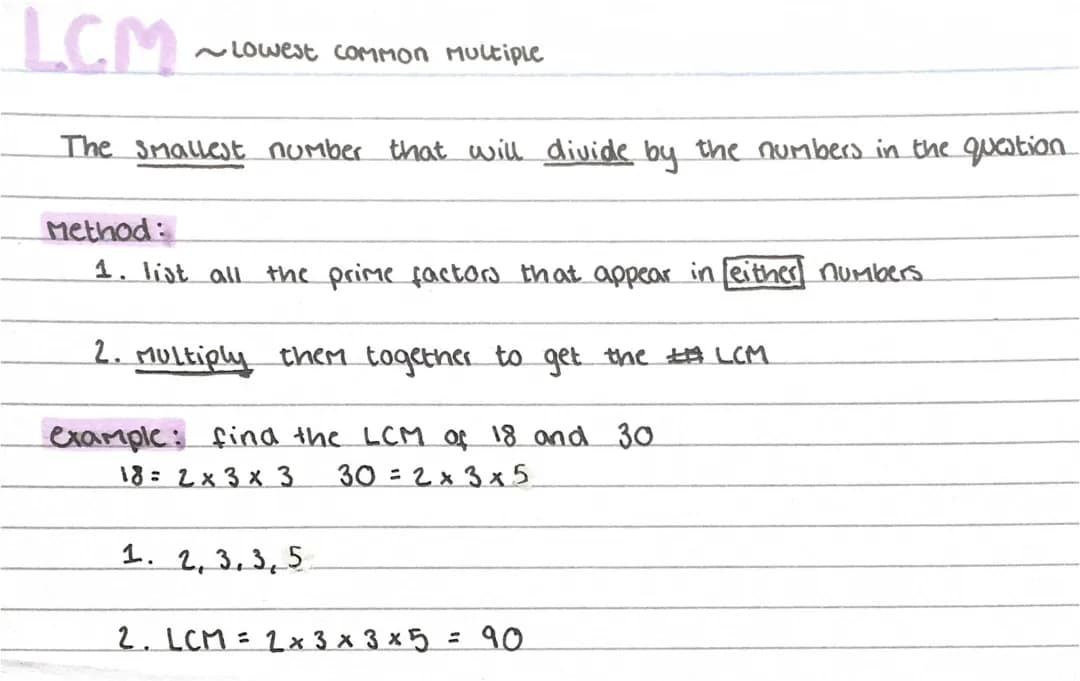 LCM ~ Lowest common Multiple
The smallest number that will divide by the numbers in the question
Method:
1. list all the prime factors that appear in either numbers
2. Multiply them together to get the LCM
Example: find the LCM of 18 and 30
18 = 2 x 3 x 3 30 = 2 x 3 x 5
1. 2, 3, 3, 5
2. LCM = 2 x 3 x 3 x 5 = 90